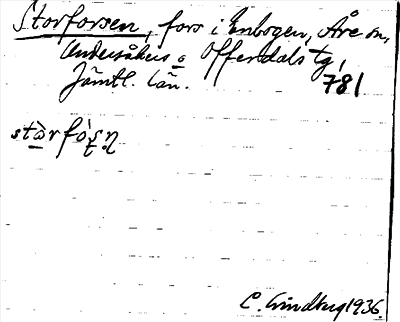 Storforsen, fors i Enbogen, Åre sn,
Undersåkers o Offerdals tg,
Jämtl. län. 781
stòrfòṣṇ
C. Lindberg 1936.